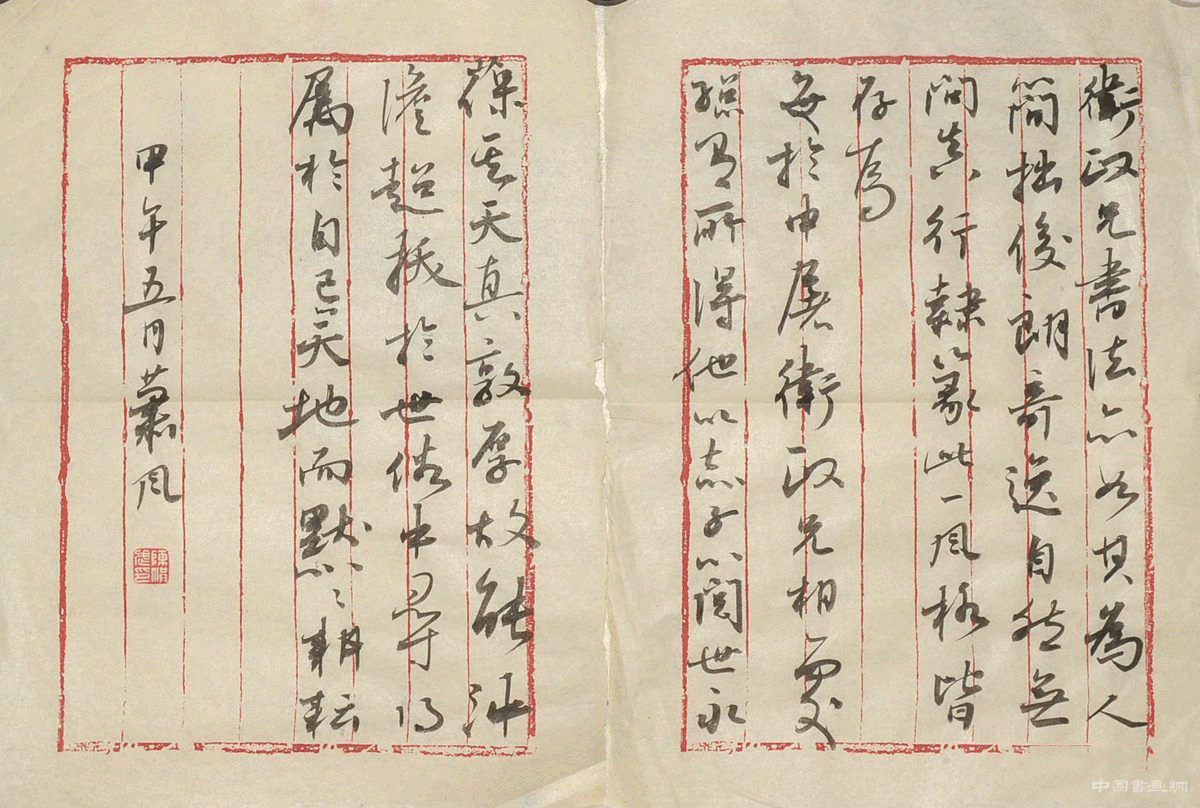 衛政兄書法亦如其為人
簡拙俊朗奇逸自然無
問真行隸篆此一風格皆
存焉
每於申屠衛政兄相處
總有所得他以赤子心閱世永
葆其天真敦厚故能沖
澹超拔於世俗中尋得
屬於自己天地而默〻耕耘
甲午五月蕭風
中国書画網